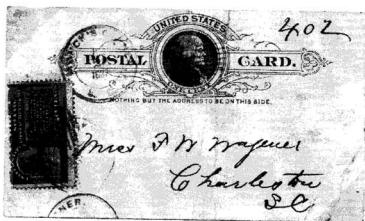 402
UNITED STATES
POSTAL CARD.
ONE CENT
NOTHING BUT THE ADDRESS TO BE ON THIS SIDE.
Miss F W Wagener
Charleston
SC